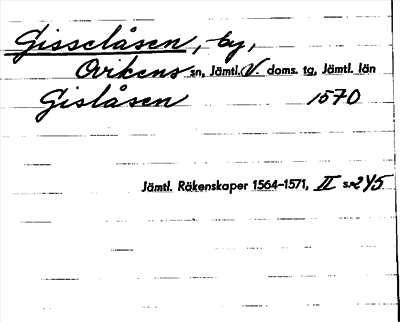 Gisselåsen, by,
Ovikens sn, Jämtl. V. doms. tg, Jämtl. län
Gislåsen 1570
Jämtl. Räkenskaper 1564–1571, II s. 245